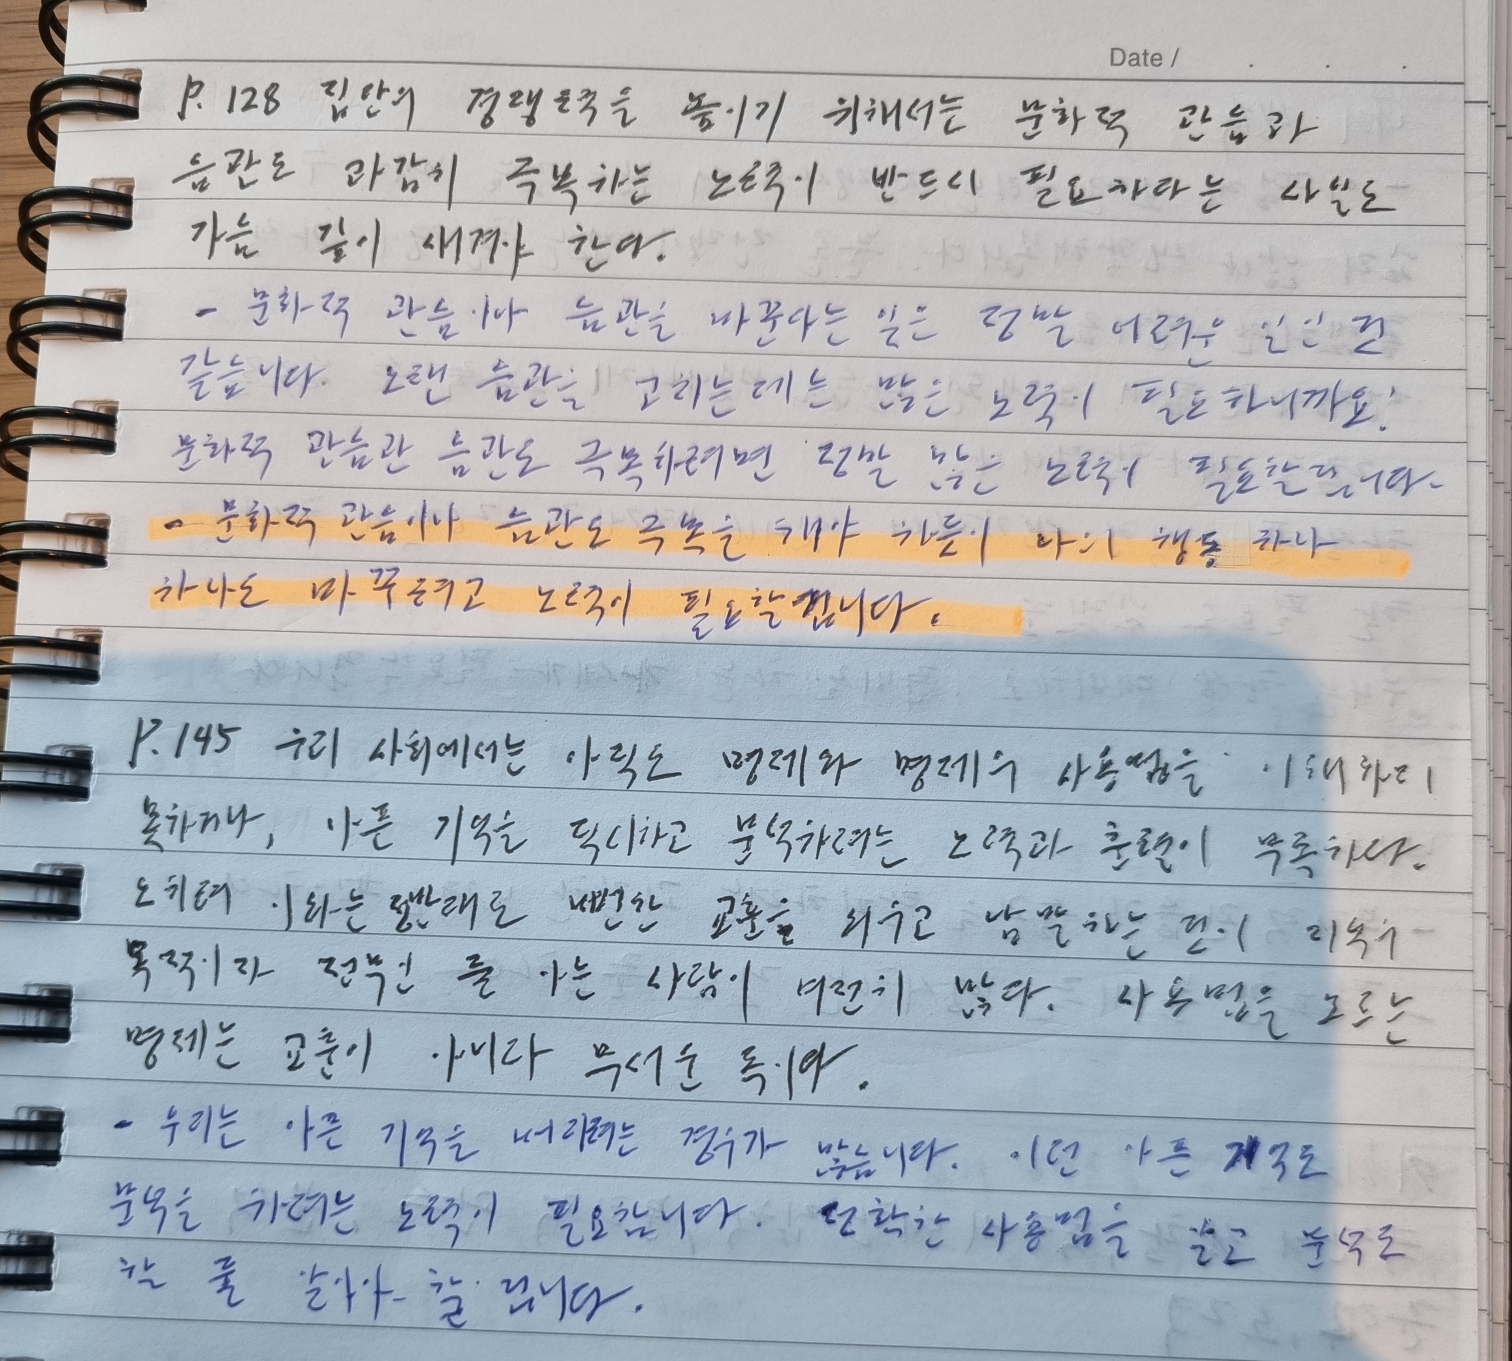 Date / . . .
P. 128 집안의 경쟁력을 높이기 위해서는 문화적 관습과
습관도 과감히 극복하는 노력이 반드시 필요하다는 사실도
가슴 깊이 새겨야 한다.
- 문화적 관습이나 습관을 바꾼다는 일은 정말 어려운 일인 것
같습니다. 오랜 습관을 고치는데는 많은 노력이 필요하니까요!
문화적 관습관 습관도 극복하려면 정말 많은 노력이 필요할겁니다.
- 문화적 관습이나 습관도 극복을 해야 하듯이 나의 행동 하나
하나도 바꾸려고 노력이 필요할겁니다.
P. 145 우리 사회에서는 아직도 명제와 명제의 사용법을 이해하지
못하거나, 아픈 기억을 직시하고 분석하려는 노력과 훈련이 부족하다.
오히려 이와는 정반대로 뻔한 교훈을 외우고 남 말하는 것이 지식의
목적이자 전부인 줄 아는 사람이 여전히 많다. 사용법을 모르는
명제는 교훈이 아니라 무서운 독이다.
- 우리는 아픈 기억을 버리려는 경우가 많습니다. 이런 아픈 기억도
분석을 하려는 노력이 필요합니다. 정확한 사용법을 알고 분석도
할 줄 알아야 할 겁니다.